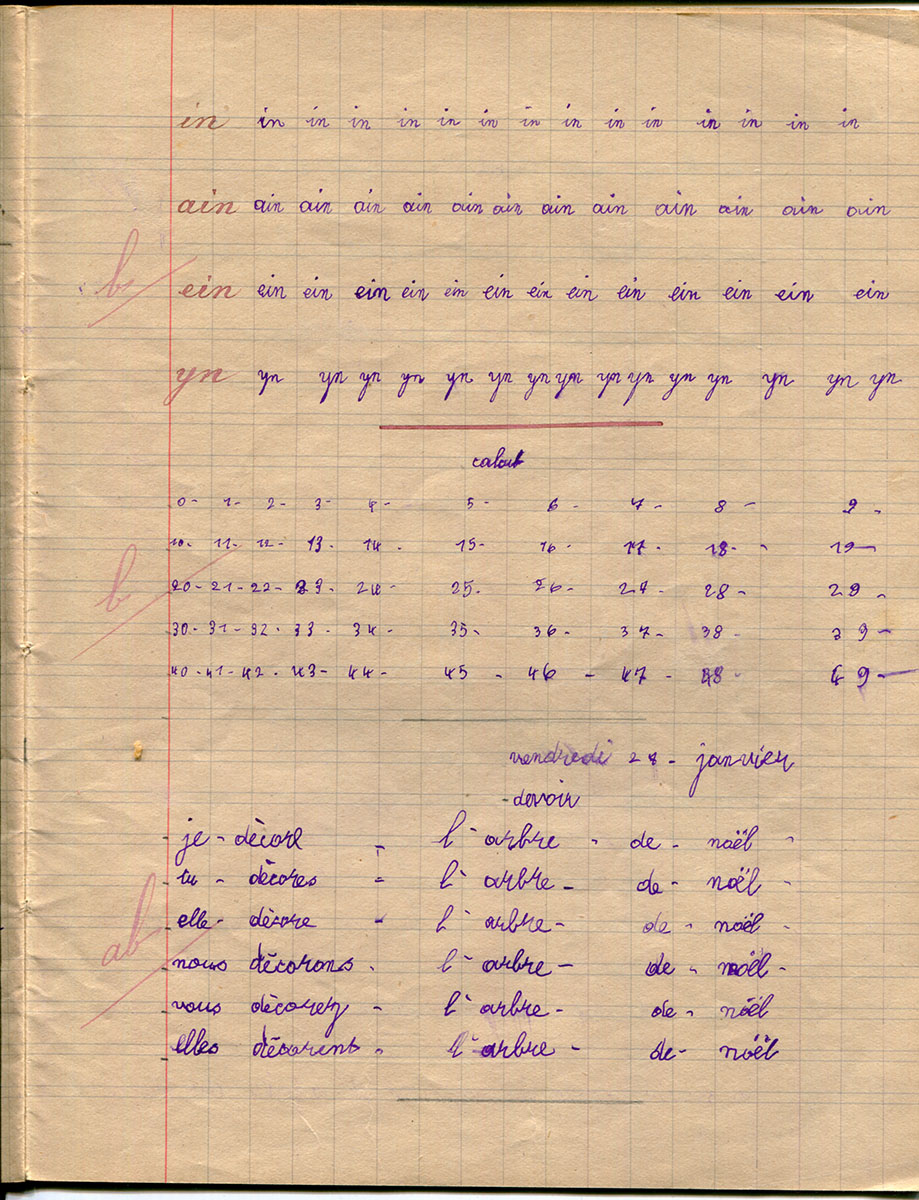 in in in in in in in in in in in in in in in
ain ain ain ain ain ain ain ain ain ain ain ain ain
b
ein ein ein ein ein ein ein ein ein ein ein ein ein ein
yn yn yn yn yn yn yn yn yn yn yn yn yn yn yn yn
calcul
0- 1- 2- 3- 4- 5- 6- 7- 8- 9-
10- 11- 12- 13- 14- 15- 16- 17- 18- 19-
b
20- 21- 22- 23- 24- 25- 26- 27- 28- 29-
30- 31- 32- 33- 34- 35- 36- 37- 38- 39-
40- 41- 42- 43- 44- 45- 46- 47- 48- 49-
vendredi 28 - janvier
-devoir
je - décore - l'arbre - de - noël -
tu - décores - l'arbre - de - noël -
elle - décore - l'arbre - de - noël -
ab
nous décorons - l'arbre - de - noël -
vous décorez - l'arbre - de - noël
elles décorent - l'arbre - de - noël